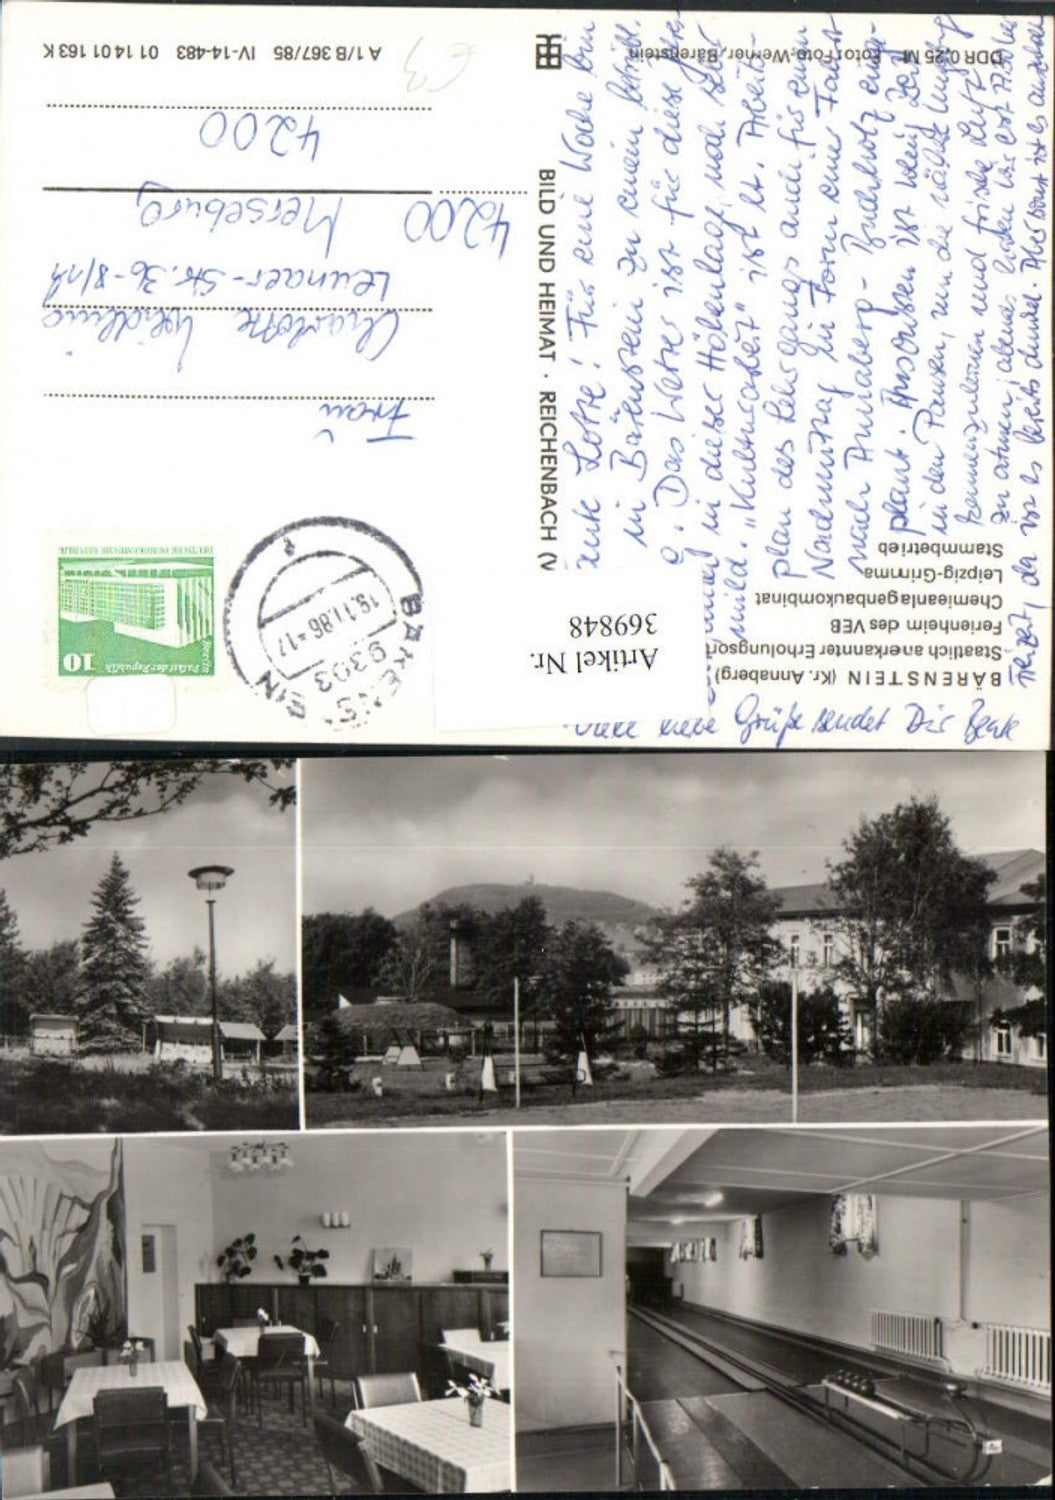 BÄRENSTEIN (Kr. Annaberg)
Staatlich anerkannter Erholungsort
Ferienheim des VEB
Chemieanlagenbaukombinat
Leipzig-Grimma
Stammbetrieb
DDR 0,25 M Foto: Foto-Werner, Bärenstein
BILD UND HEIMAT · REICHENBACH (V
A 1/B 367/85 IV-14-483 01 14 01 163 K
Artikel Nr.
369848
Lotte! Für eine Woche bin
in Bärenstein zu einem
Das Wetter ist für diese
in dieser Höhenlage noch sehr
mild. "Kulturarbeit" ist lt. Arbeits-
plan des Lehrgangs auch für einen
Nachmittag in Form einer Fahrt
nach Annaberg-Buchholz einge-
plant. Ansonsten ist kein Zeit
in den Pausen, um die nächste Umgebung
kennenzulernen und frische Luft
zu atmen, abends
da ist es bereits dunkel. Ansonst ist es
liebe Grüße sendet Dir Beate
Frau
Charlotte
Leunaer-Str. 36-8/
Merseburg
4200
4200
BÄRENSTEIN
9303
19.11.86-17
10
Palast der Republik
Berlin
DEUTSCHE DEMOKRATISCHE REPUBLIK